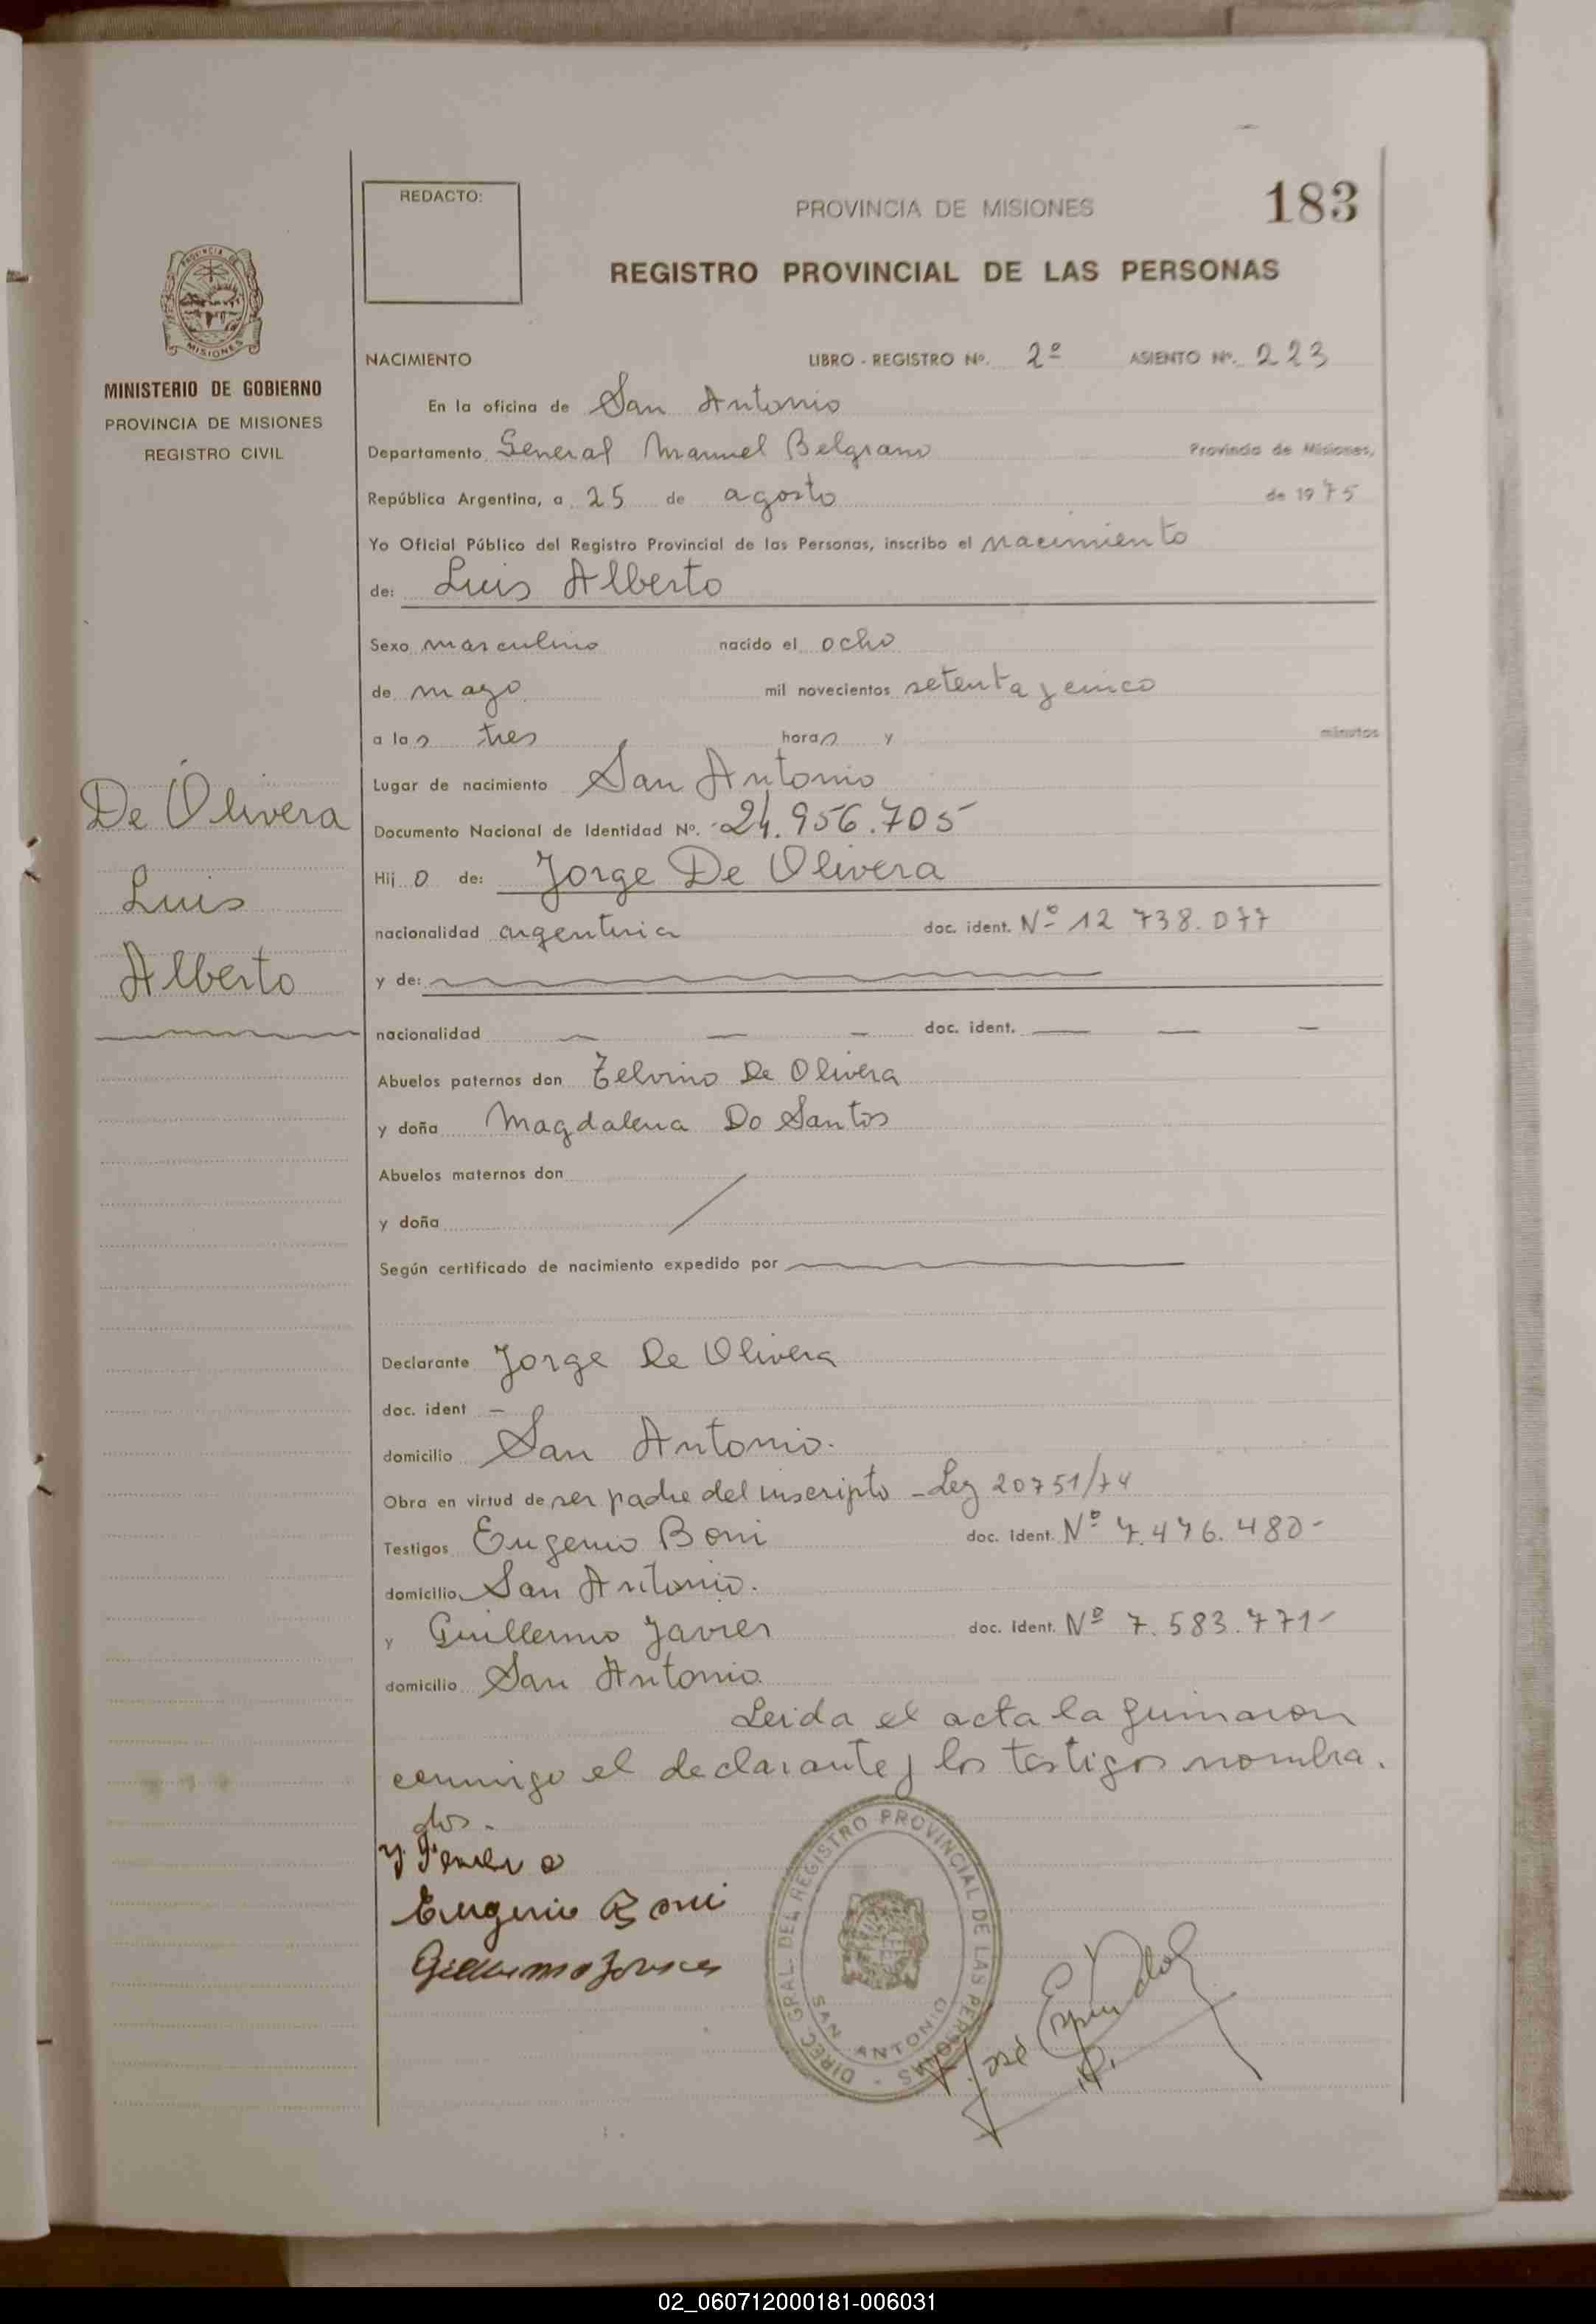 183
REDACTO:
PROVINCIA DE MISIONES
REGISTRO PROVINCIAL DE LAS PERSONAS
PROVINCIA DE
MISIONES
MINISTERIO DE GOBIERNO
PROVINCIA DE MISIONES
REGISTRO CIVIL
De Olivera
Luis
Alberto
NACIMIENTO LIBRO - REGISTRO Nº. 2º ASIENTO Nº. 223
En la oficina de San Antonio
Departamento General Manuel Belgrano Provincia de Misiones,
República Argentina, a 25 de agosto de 1975
Yo Oficial Público del Registro Provincial de las Personas, inscribo el nacimiento
de: Luis Alberto
Sexo masculino nacido el ocho
de mayo mil novecientos setenta y cinco
a las tres horas y minutos
Lugar de nacimiento San Antonio
Documento Nacional de Identidad Nº. 24.956.705
Hijo de: Jorge De Olivera
nacionalidad argentina doc. ident. Nº 12 738.077
y de:
nacionalidad doc. ident.
Abuelos paternos don Telvino De Olivera
y doña Magdalena Do Santos
Abuelos maternos don
y doña
Según certificado de nacimiento expedido por
Declarante Jorge De Olivera
doc. ident –
domicilio San Antonio.
Obra en virtud de ser padre del inscripto - Ley 20751/74
Testigos Eugenio Boni doc. Ident. Nº 7.476.480-
domicilio San Antonio.
y Guillermo Javier doc. Ident. Nº 7.583.771-
domicilio San Antonio.
Leida el acta la firmaron
conmigo el declarante y los testigos nombra.
dos.
Eugenio Boni
Guillermo Javier
DIREC. GRAL. DEL REGISTRO PROVINCIAL DE LAS PERSONAS -
SAN ANTONIO
José Espíndola
02_060712000181-006031